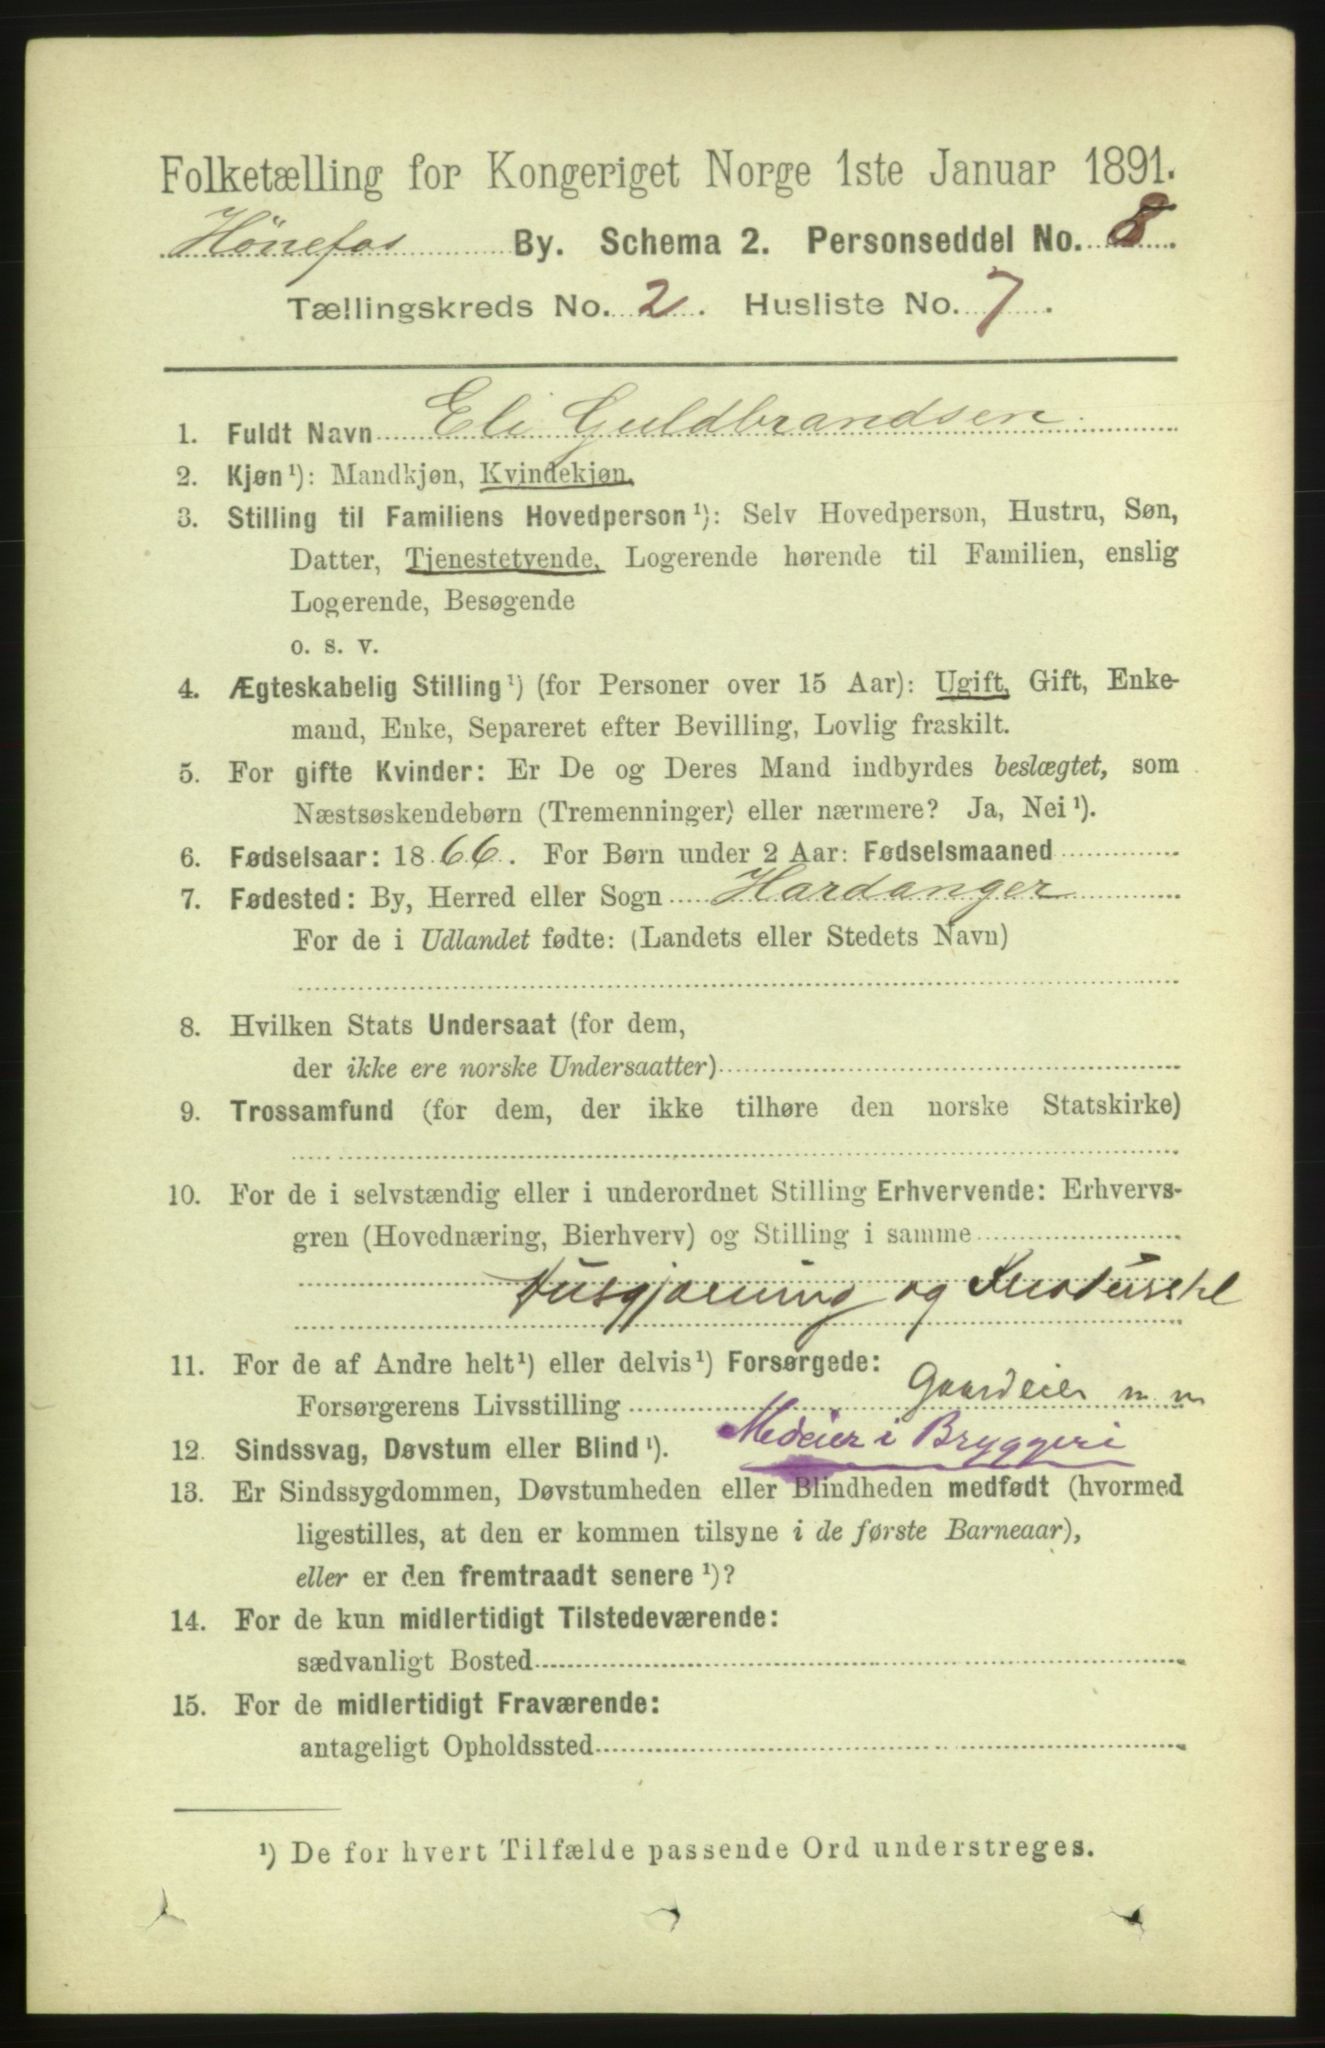 Folketælling for Kongeriget Norge 1ste Januar 1891.
Hönefos By. Schema 2. Personseddel No. 8.
Tællingskreds No. 2. Husliste No. 7.
1. Fuldt Navn Eli Guldbrandsen
2. Kjøn¹): Mandkjøn, Kvindekjøn.
3. Stilling til Familiens Hovedperson¹): Selv Hovedperson, Hustru, Søn,
Datter, Tjenestetyende, Logerende hørende til Familien, enslig
Logerende, Besøgende
o. s. v.
4. Ægteskabelig Stilling¹) (for Personer over 15 Aar): Ugift, Gift, Enke-
mand, Enke, Separeret efter Bevilling, Lovlig fraskilt.
5. For gifte Kvinder: Er De og Deres Mand indbyrdes beslægtet, som
Næstsøskendebørn (Tremenninger) eller nærmere? Ja, Nei¹).
6. Fødselsaar: 1866. For Børn under 2 Aar: Fødselsmaaned
7. Fødested: By, Herred eller Sogn Hardanger
For de i Udlandet fødte: (Landets eller Stedets Navn)
8. Hvilken Stats Undersaat (for dem,
der ikke ere norske Undersaatter)
9. Trossamfund (for dem, der ikke tilhøre den norske Statskirke)
10. For de i selvstændig eller i underordnet Stilling Erhvervende: Erhvervs-
gren (Hovednæring, Bierhverv) og Stilling i samme
Husgjerning og
11. For de af Andre helt¹) eller delvis¹) Forsørgede:
Forsørgerens Livsstilling Gaardeier m m
12. Sindssvag, Døvstum eller Blind¹). Medeier i Bryggeri
13. Er Sindssygdommen, Døvstumheden eller Blindheden medfødt (hvormed
ligestilles, at den er kommen tilsyne i de første Barneaar),
eller er den fremtraadt senere¹)?
14. For de kun midlertidigt Tilstedeværende:
sædvanligt Bosted
15. For de midlertidigt Fraværende:
antageligt Opholdssted
¹) De for hvert Tilfælde passende Ord understreges.